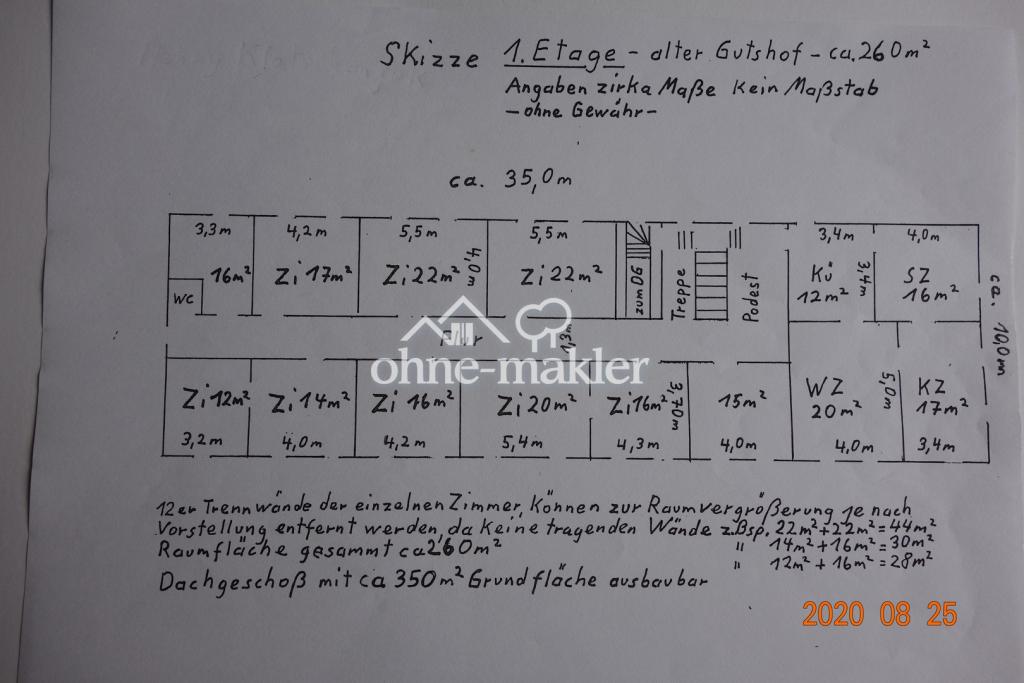 Skizze 1. Etage - alter Gutshof - ca. 260m²
Angaben zirka Maße Kein Maßstab
- ohne Gewähr -
ca. 35,0m
3,3m 4,2m 5,5m 5,5m 3,4m 4,0m
16m² Zi 17m² Zi 22m² 4,0m Zi 22m² zum DG Treppe Podest Kü 12m² 3,4m SZ 16m²
WC
ca. 10,0m
Flur 1,3m
ohne-makler
Zi 12m² Zi 14m² Zi 16m² Zi 20m² Zi 16m² 3,70m 15m² WZ 20m² 5,0m KZ 17m²
3,2m 4,0m 4,2m 5,4m 4,3m 4,0m 4,0m 3,4m
12er Trennwände der einzelnen Zimmer, Können zur Raumvergrößerung je nach
Vorstellung entfernt werden, da Keine tragenden Wände z.Bsp. 22m²+22m²=44m²
Raumfläche gesammt ca 260m² " 14m²+16m²=30m²
" 12m²+16m²=28m²
Dachgeschoß mit ca 350m² Grundfläche ausbaubar
2020 08 25